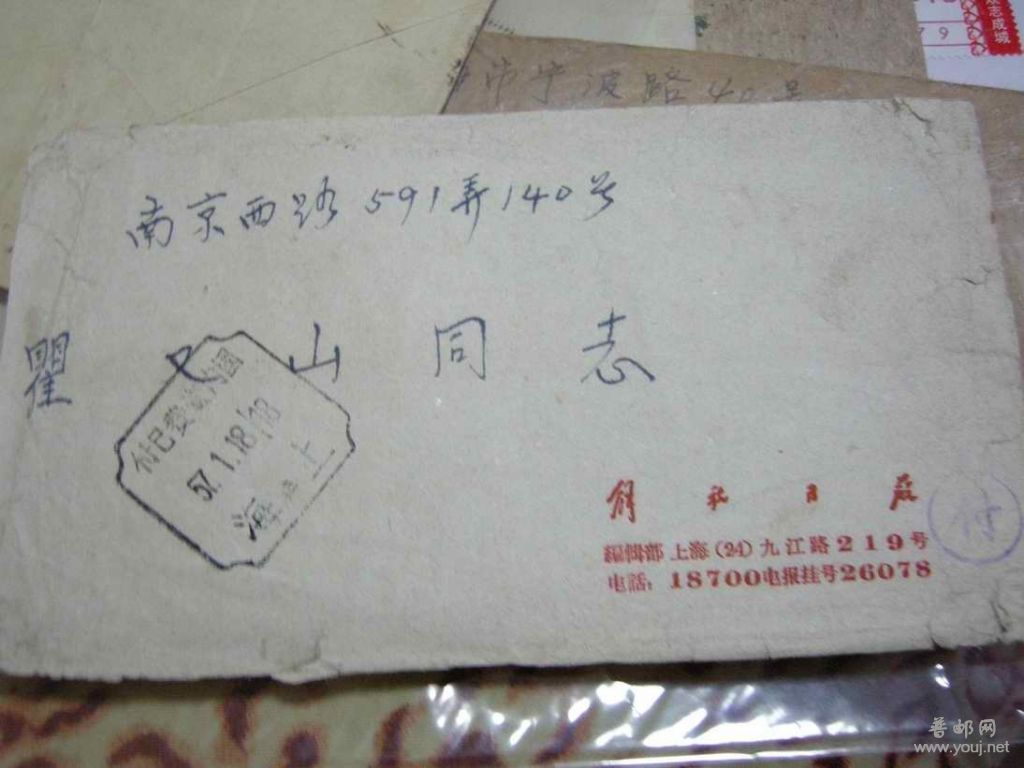 众志成城
79
市宁波路40号
南京西路591弄140号
瞿 山同志
国内邮资已付
57.1.18.18
上海
解放日报
编辑部 上海(24)九江路219号
电話:18700电报挂号26078
付
普邮网
www.youj.net